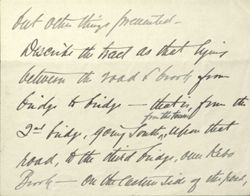 but other things presented—
Describe the tract as that lying
between the road & brook from
bridge to bridge — that is, from the
from the town
2nd bridge, going South, upon that
road, to the third bridge, over
Brook — on the Eastern side of the